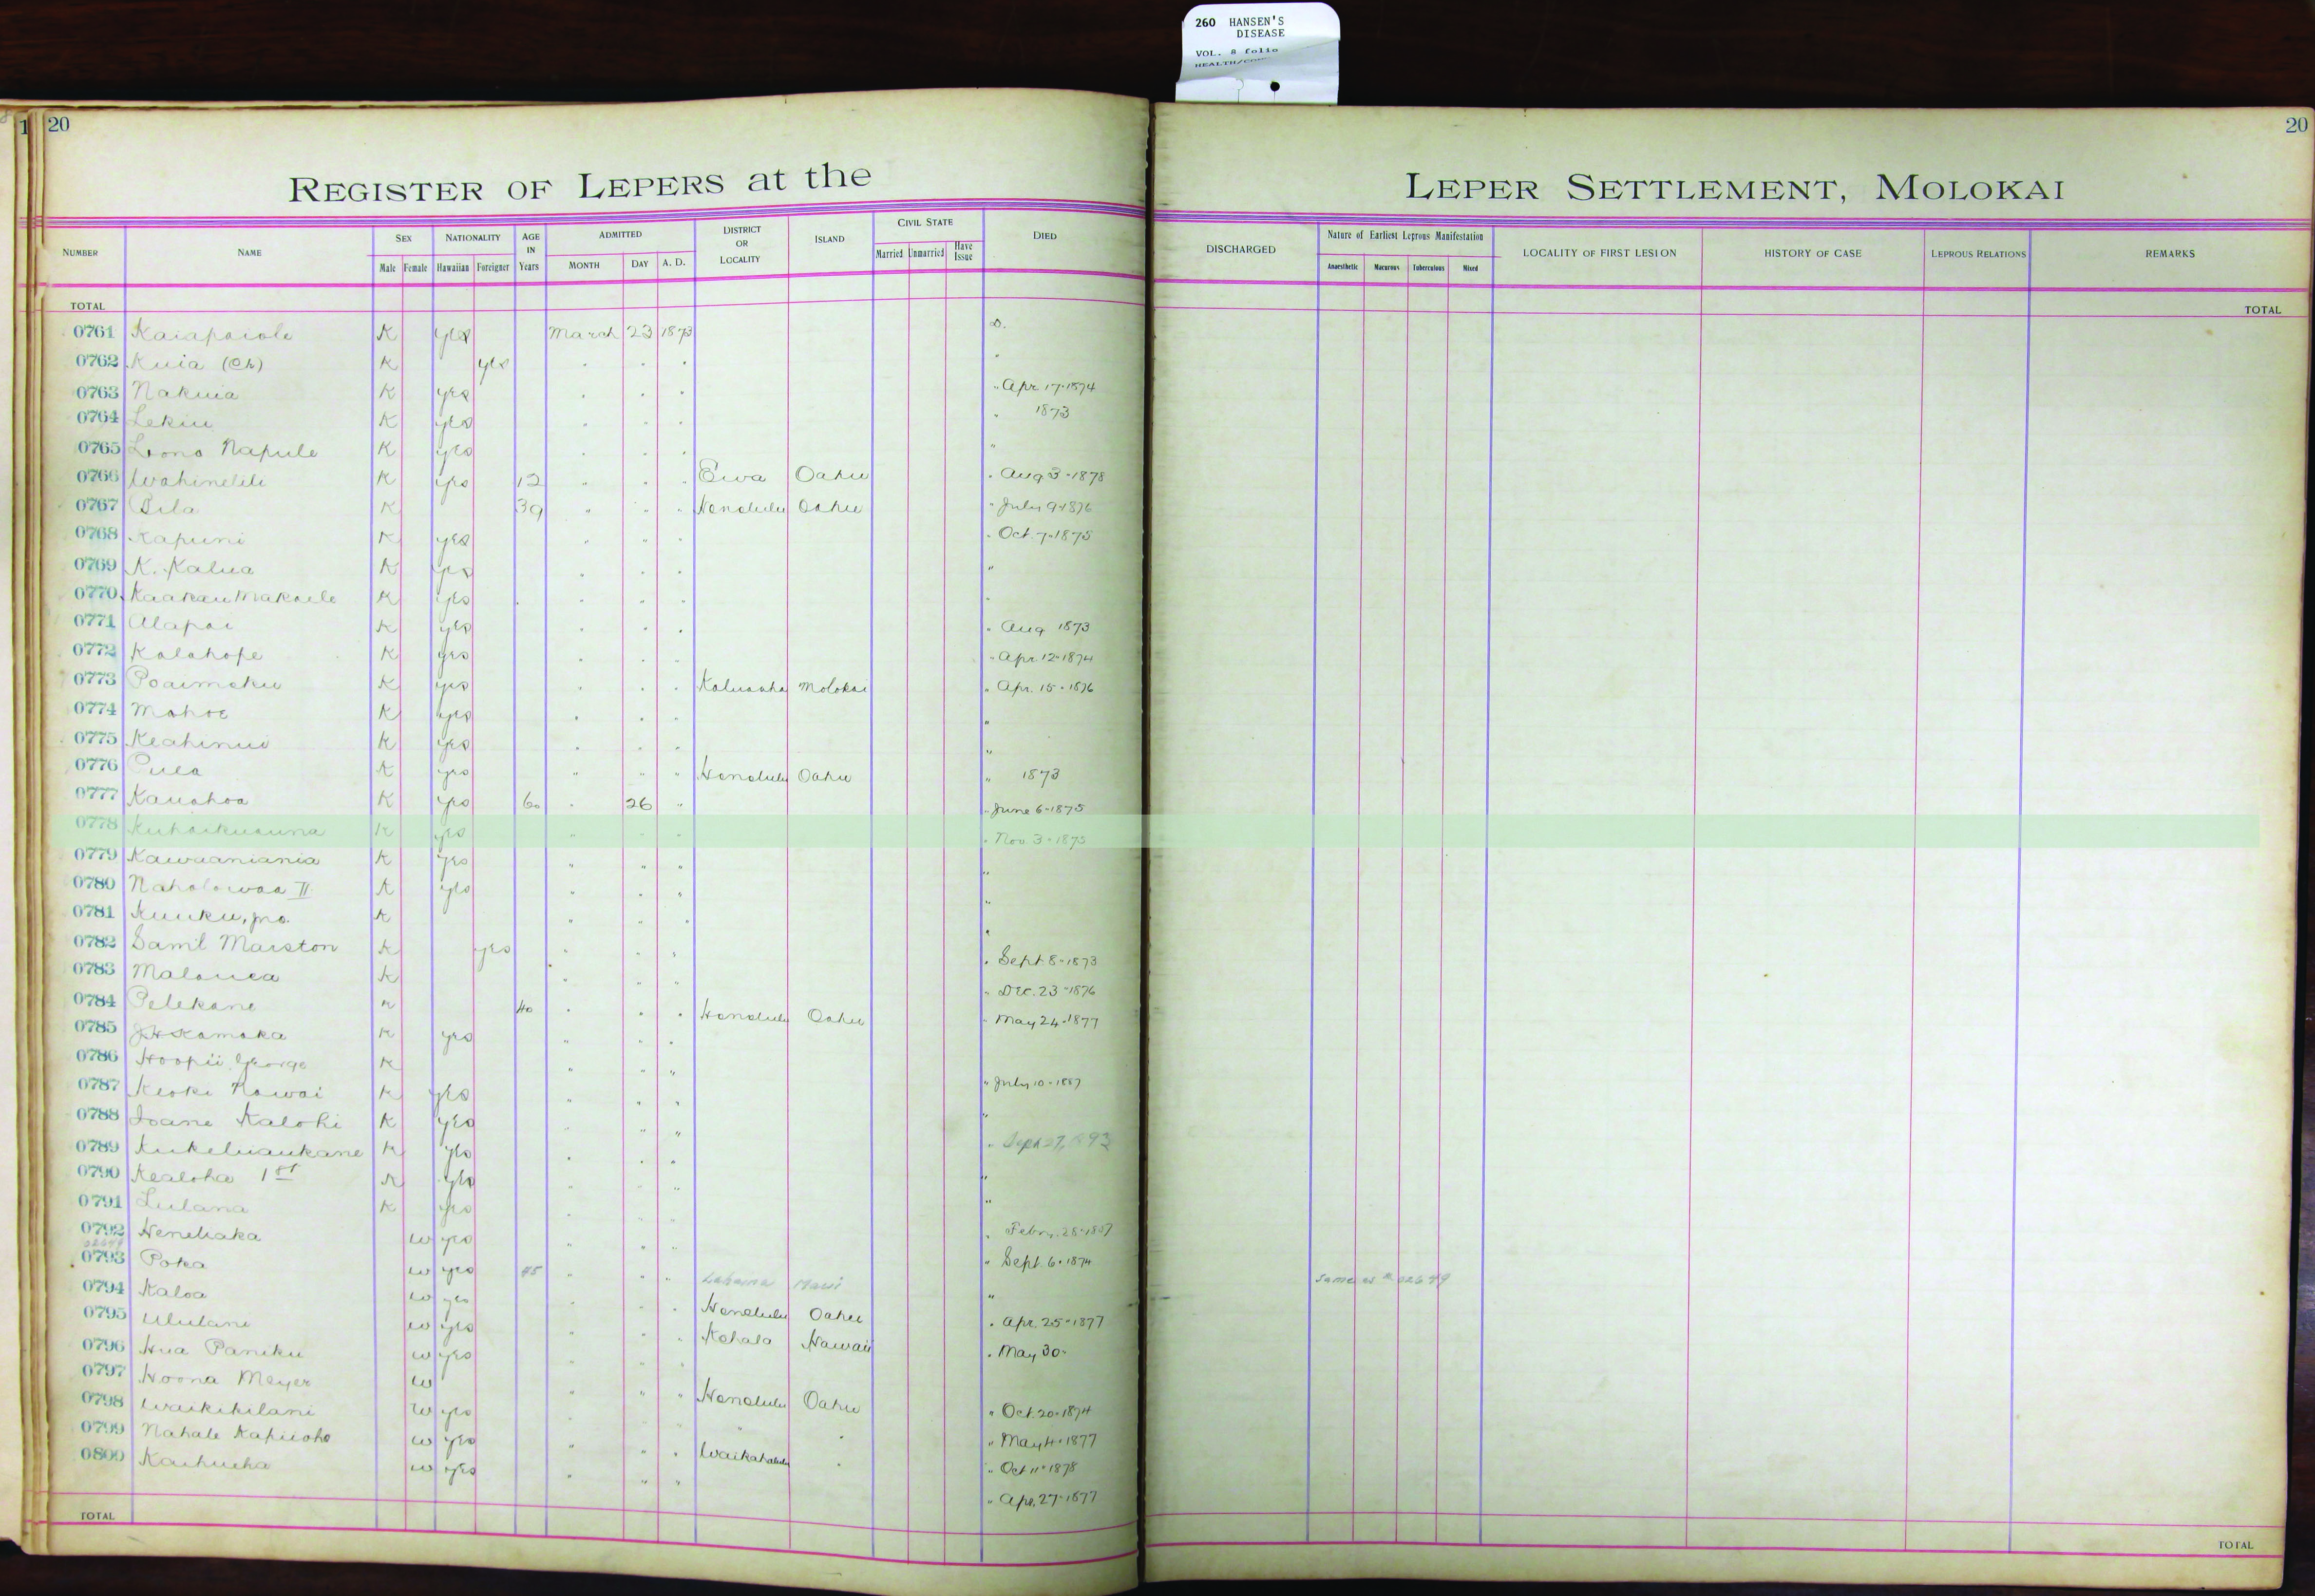 260 HANSEN'S
DISEASE
VOL. 8 folio
20
20
REGISTER OF LEPERS at the LEPER SETTLEMENT, MOLOKAI
NUMBER NAME SEX Male Female NATIONALITY Hawaiian Foreigner AGE IN Years ADMITTED MONTH DAY A. D. DISTRICT OR LOCALITY ISLAND CIVIL STATE Married Unmarried Have Issue DIED
DISCHARGED Nature of Earliest Leprous Manifestation Anaesthetic Macurous Tuberculous Mixed LOCALITY OF FIRST LESION HISTORY OF CASE LEPROUS RELATIONS REMARKS
TOTAL TOTAL
0761 Kaiapaiole K yes March 23 1873 D.
0762 Kuia (Ch) K yes " " " "
0763 Nakuia K yes " " " " Apr 17-1874
0764 Lekiu K yes " " " " 1873
0765 Lono Napule K yes " " " "
0766 Wahinelili K yes 12 " " " Ewa Oahu " Aug 3-1878
0767 Pila K 39 " " " Honolulu Oahu " July 9-1876
0768 Kapuni K yes " " " " Oct. 7-1875
0769 K. Kalua K yes " " " "
0770 Kaakau Makaele K yes " " " "
0771 Alapai K yes " " " " Aug 1873
0772 Kalahope K yes " " " " Apr. 12-1874
0773 Poaimoku K yes " " " Kaluaaha Molokai " Apr. 15-1876
0774 Mahoe K yes " " " "
0775 Keahinui K yes " " " "
0776 Puea K yes " " " Honolulu Oahu " 1873
0777 Kauahoa K yes 60 " 26 " " June 6-1875
0778 Kuhaikuauna K yes " " " " Nov. 3-1873
0779 Kawaaniania K yes " " " "
0780 Naholowaa II K yes " " " "
0781 Kuuku, jno. K " " " "
0782 Saml Marston K yes " " " " Sept 8-1873
0783 Malouea K " " " " Dec. 23-1876
0784 Pelekane K 40 " " " Honolulu Oahu " May 24-1877
0785 J.H. Kamaka K yes " " "
0786 Hoopii George K " " " " July 10-1887
0787 Keoki Kawai K yes " " " "
0788 Ioane Kalohi K yes " " " " Sept 27, 1893
0789 Kukeliaukane K yes " " " "
0790 Kealoha 1st K yes " " " "
0791 Lulana K yes " " " " Febr. 28-1887
0792 Heneliaka W yes " " " " Sept. 6-1874
0793 Poka W yes 45 " " " Lahaina Maui " Same as # 02649
0794 Kaloa W yes " " " Honolulu Oahu " Apr. 25-1877
0795 Ululani W yes " " " Kohala Hawaii " May 30-
0796 Hua Paniku W yes " " "
0797 Hoona Meyer W " " " Honolulu Oahu " Oct. 20-1874
0798 Waikikilani W yes " " " " " " May 4-1877
0799 Nahale Kapuoho W yes " " " Waikahalulu " " Oct 11-1878
0800 Kaihueha W yes " " " " Apr. 27-1877
TOTAL TOTAL